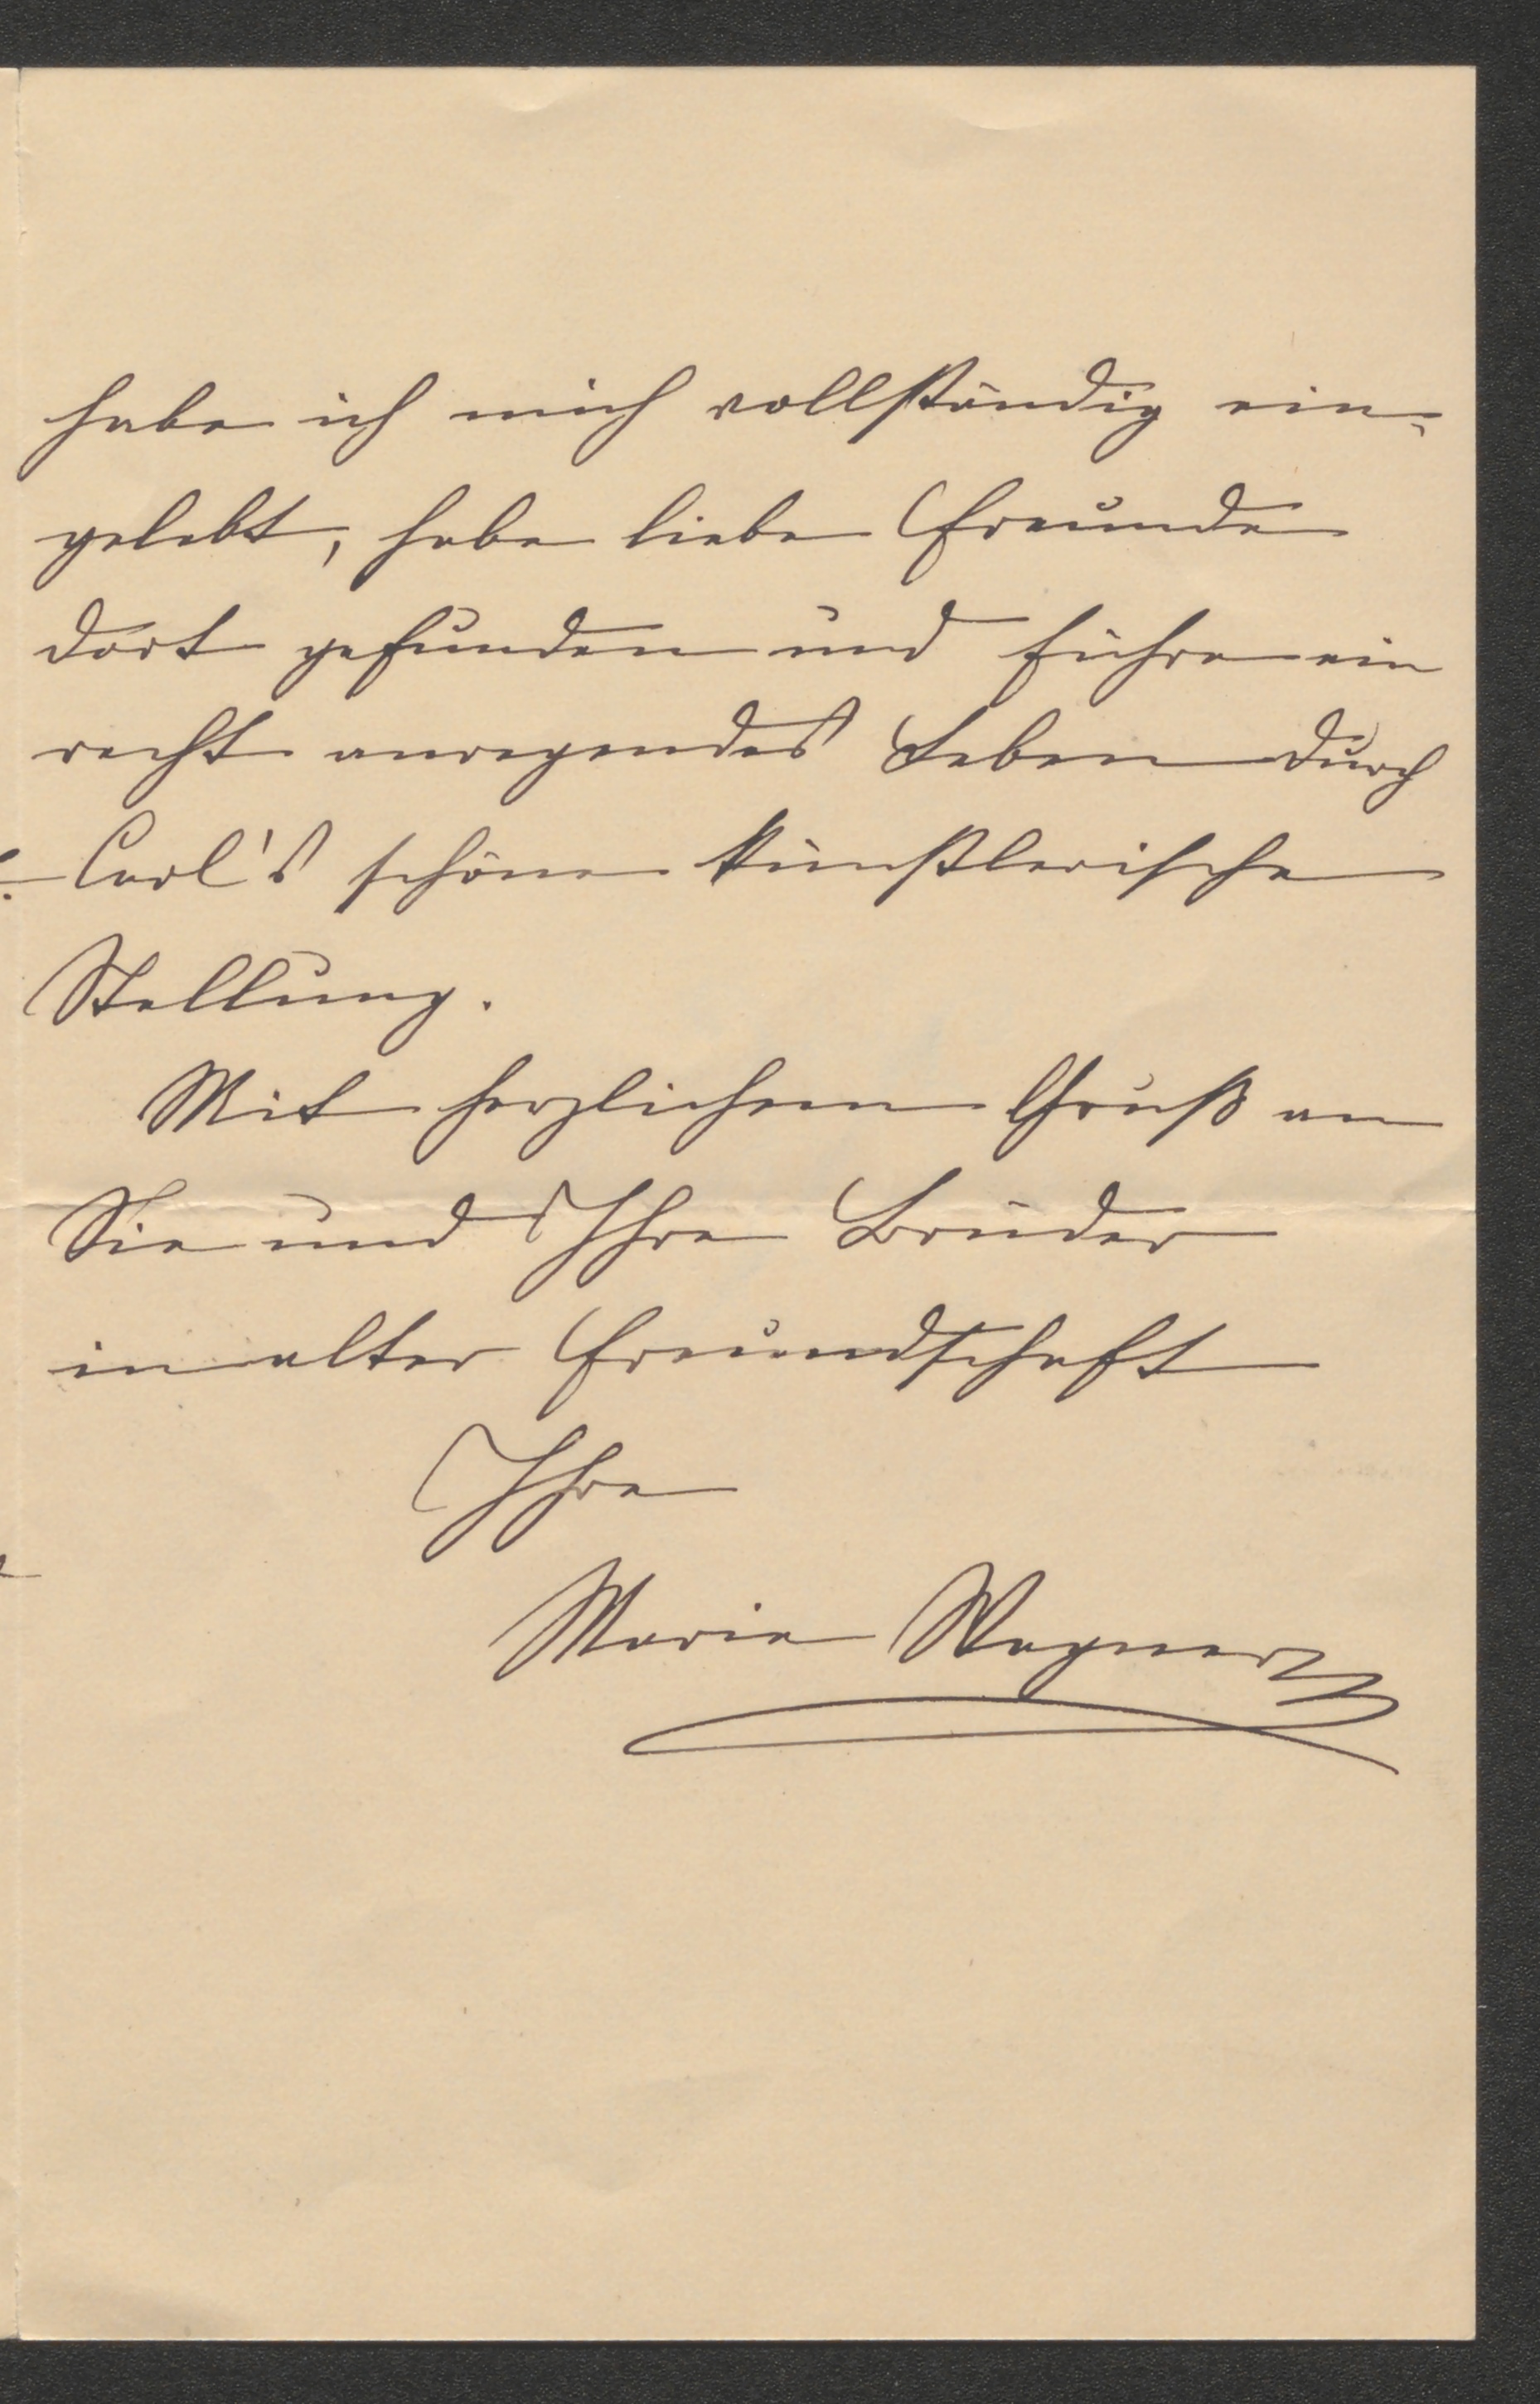 habe ich mich vollständig ein-
gelebt, habe liebe Freunde
dort gefunden und führe ein
recht anregendes Leben durch
Carl's schöne künstlerische
Stellung.
Mit herzlichem Gruß an
Sie und Ihre Brüder
in alter Freundschaft
Ihre
Marie Wagner